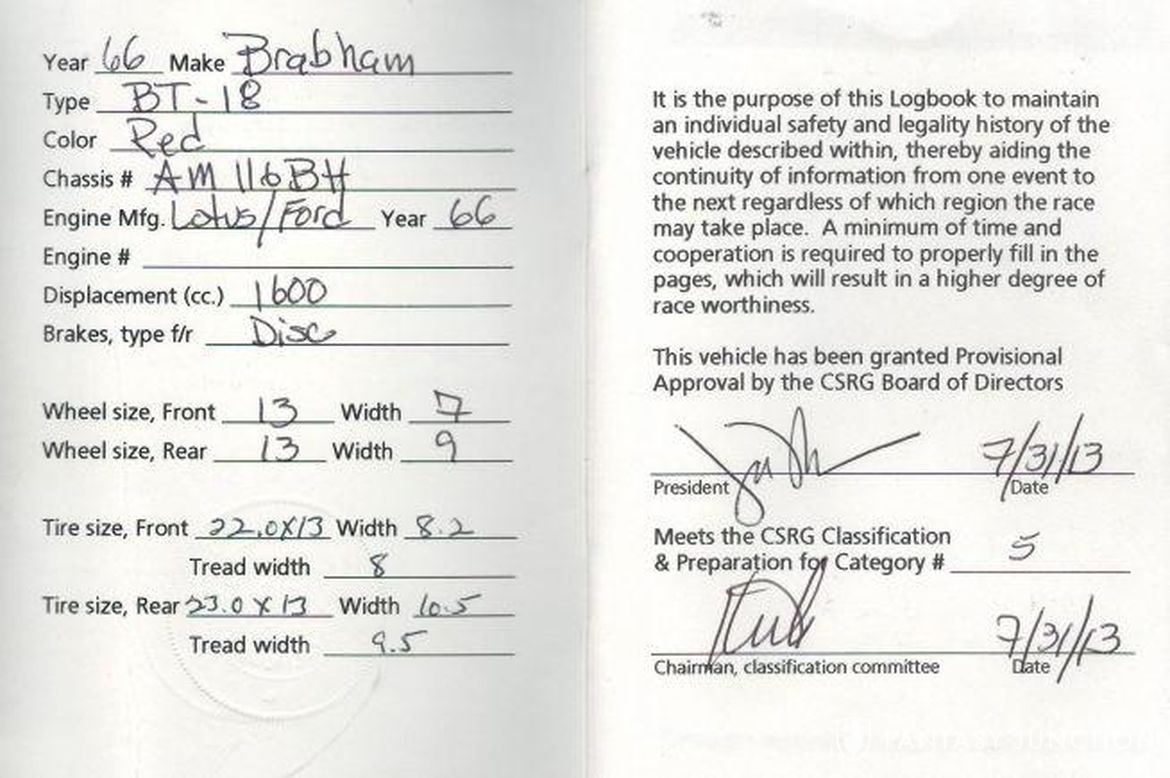 Year 66 Make Brabham
Type BT-18
Color Red
Chassis # AM 116BH
Engine Mfg. Lotus/Ford Year 66
Engine #
Displacement (cc.) 1600
Brakes, type f/r Disc
Wheel size, Front 13 Width 7
Wheel size, Rear 13 Width 9
Tire size, Front 22.0X13 Width 8.2
Tread width 8
Tire size, Rear 23.0 X 13 Width 10.5
Tread width 9.5
It is the purpose of this Logbook to maintain
an individual safety and legality history of the
vehicle described within, thereby aiding the
continuity of information from one event to
the next regardless of which region the race
may take place. A minimum of time and
cooperation is required to properly fill in the
pages, which will result in a higher degree of
race worthiness.
This vehicle has been granted Provisional
Approval by the CSRG Board of Directors
7/31/13
President Date
Meets the CSRG Classification
& Preparation for Category # 5
7/31/13
Chairman, classification committee Date